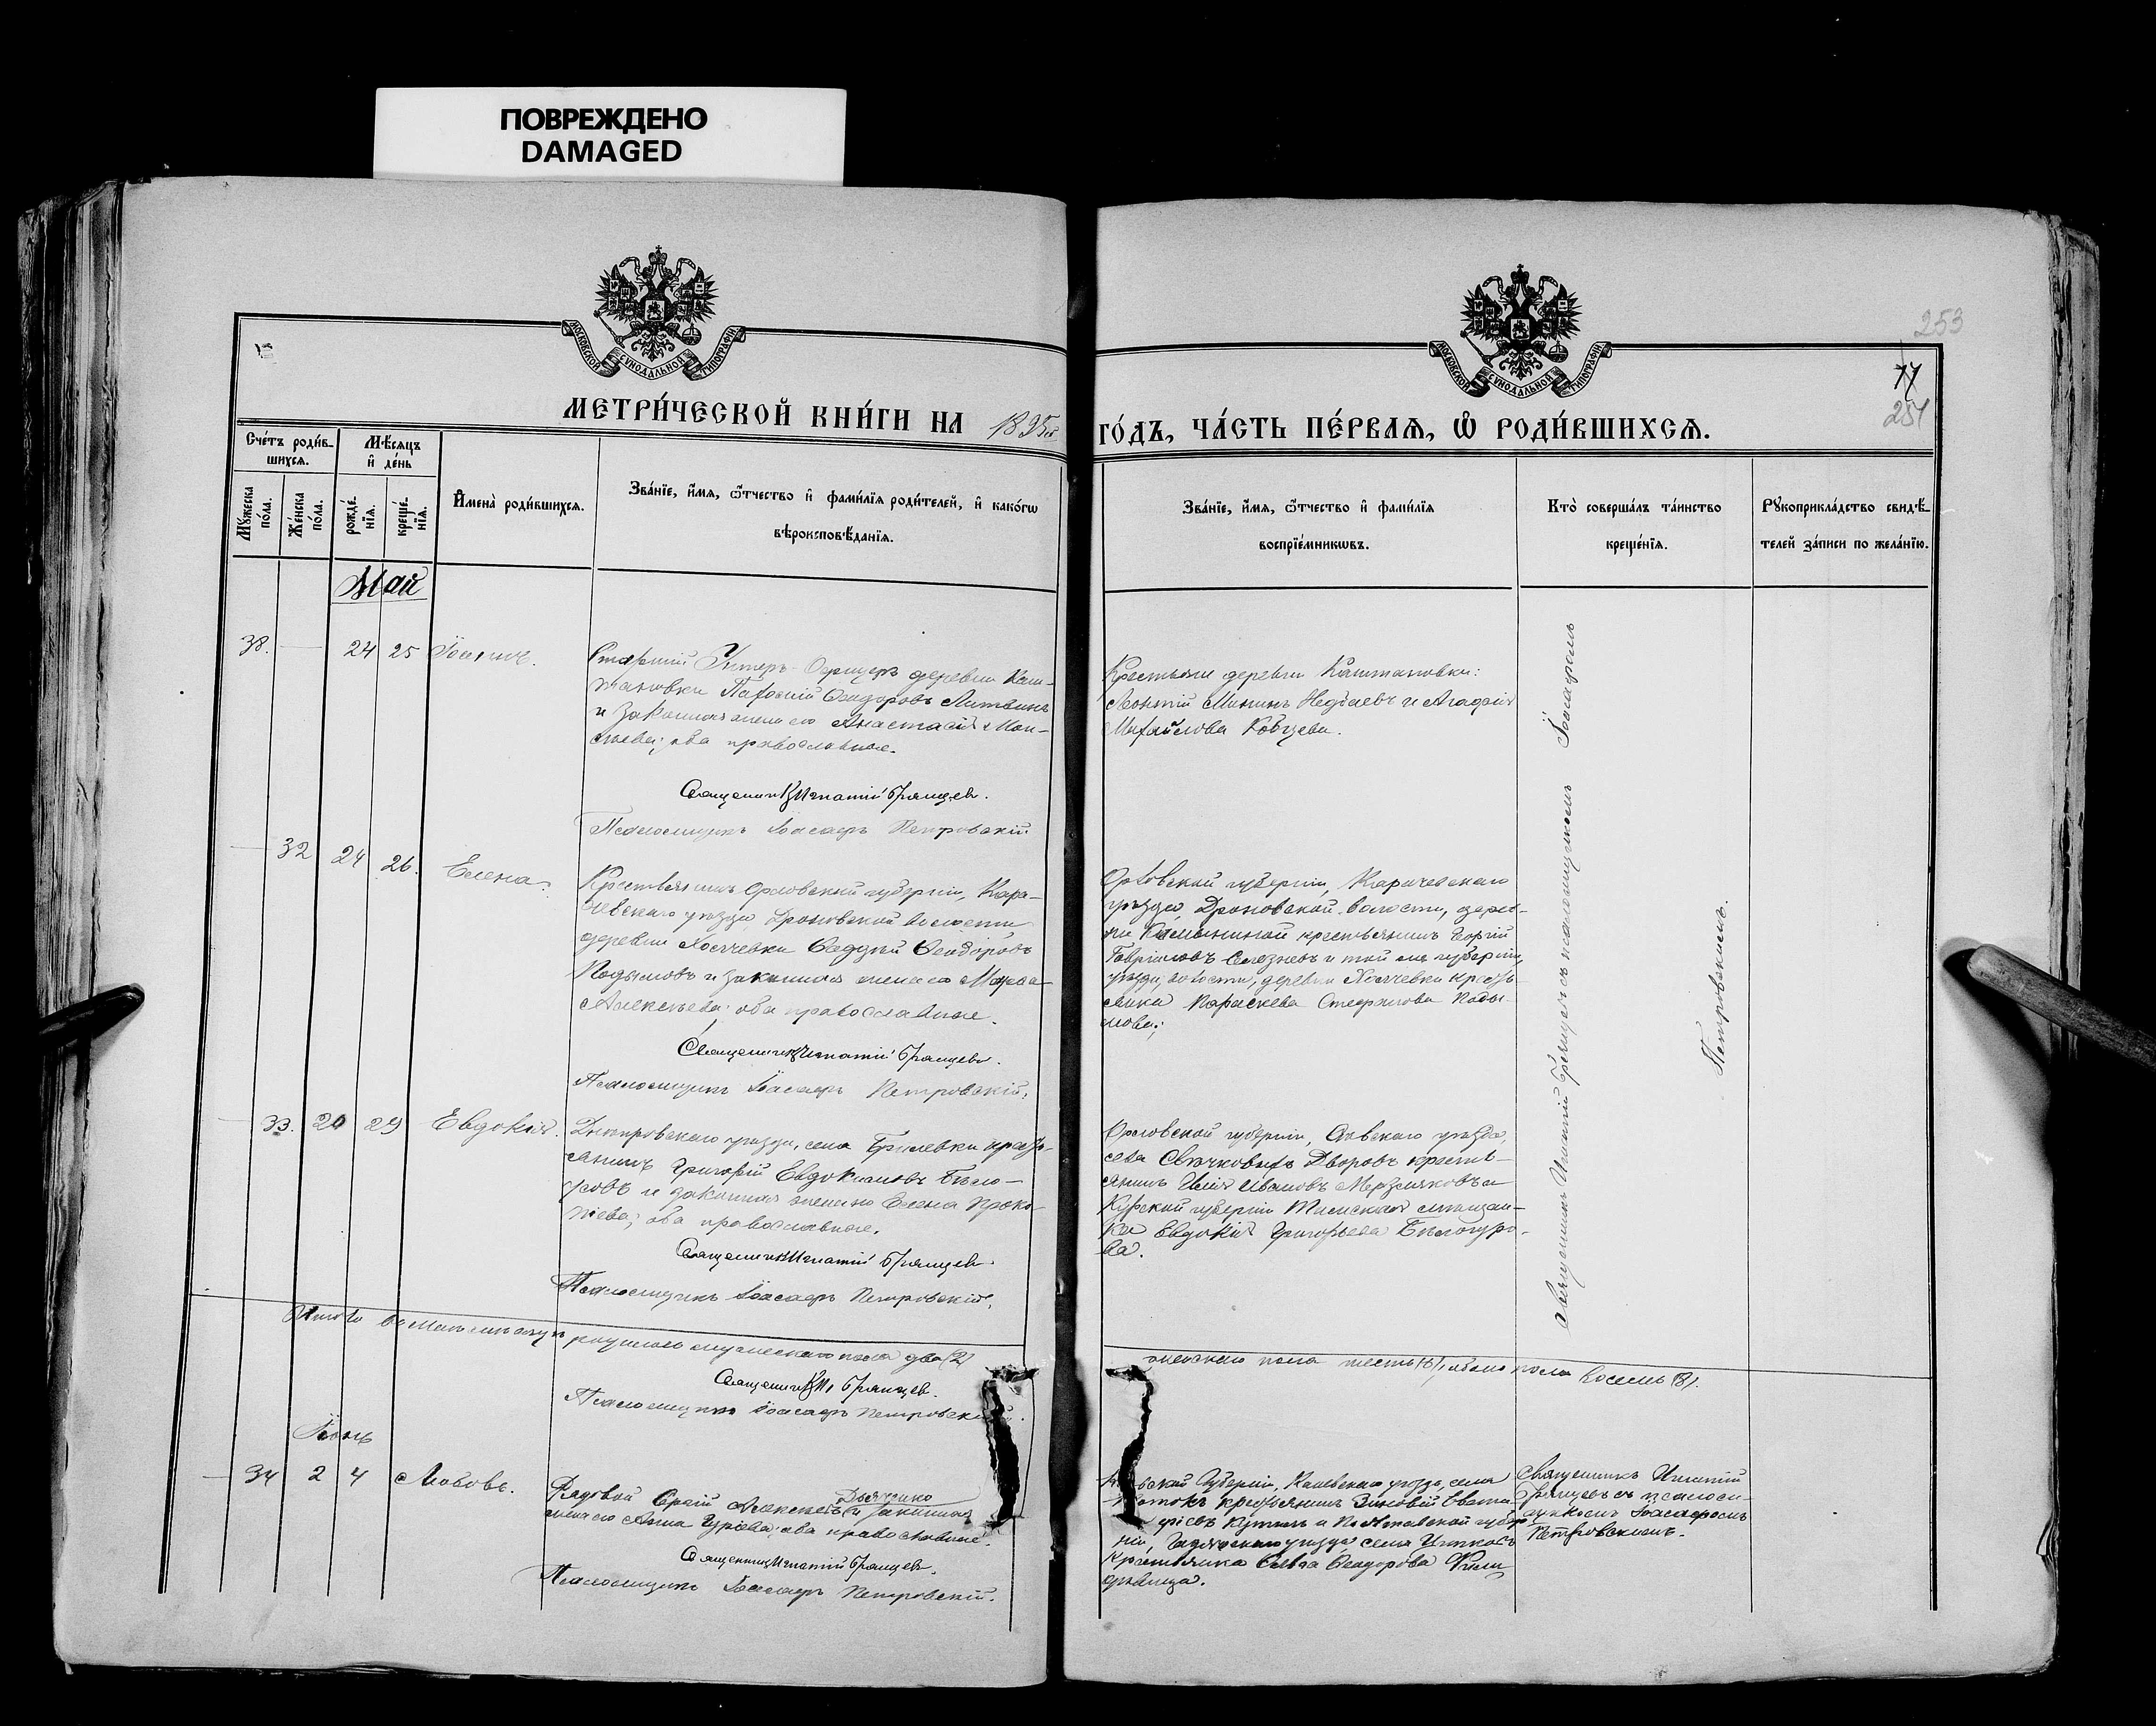 ПОВРЕЖДЕНО
DAMAGED
МОСКОВСКОЙ СѴНОДАЛЬНОЙ ТИПОГРАФІИ
МОСКОВСКОЙ СѴНОДАЛЬНОЙ ТИПОГРАФІИ
253
77
251
МЕТРИ́ЧЕСКОЙ КНИ́ГИ НА 1895й
ГО́ДЪ, ЧА́СТЬ ПЕ́РВАѦ, Ѡ РОДИ́ВШИХСѦ.
Сче́тъ роди́в-
шихсѧ.
Мѣ́сѧцъ
и҆ де́нь
Мꙋ́жеска
по́ла.
Же́нска
по́ла.
рожде́-
нїѧ.
креще́-
нїѧ.
И҆мена̀ роди́вшихсѧ.
Зва́нїе, и҆́мѧ, ѻ҆́тчество и҆ фами́лїѧ роди́телей, и҆ како́гѡ
вѣроисповѣ́данїѧ.
Зва́нїе, и҆́мѧ, ѻ҆́тчество и҆ фами́лїѧ
воспрїе́мникѡвъ.
Кто̀ соверша́лъ та́инство
креще́нїѧ.
Рꙋкоприкла́дство свидѣ́-
телей за́писи по жела́нїю.
Май
38. — 24 25 Іоаннъ.
Старшій Унтеръ-Офицеръ деревни Каш-
тановки Пафоній Феодоровъ Литвинъ
и законная жена его Анастасія Мои-
сеева; оба православные.
Священникъ Игнатій Брянцев.
Псаломщикъ Іоасафъ Петровскій
Крестьяне деревни Каштановки:
Леонтій Мининъ Недбаевъ и Агафія
Михайлова Ковцева.
— 32 24 26. Елена.
Крестьянинъ Орловской губерніи, Кара-
чевскаго уѣзда Дроновской волости
деревни Хотчевки Фаддей Феодоровъ
Подымовъ и законная жена его Марфа
Алексѣева; оба православные.
Священникъ Игнатій Брянцевъ.
Псаломщикъ Іоасафъ Петровскій.
Орловской губерніи, Карачевскаго
уѣзда, Дроновской волости, дерев-
ни крестьянинъ Георгій
Гавріиловъ Селезневъ и той же губерніи,
уѣзда, волости, деревни Хотчевки кресть-
янка Параскева Стефанова Поды-
мова;
— 33. 20 29 Евдокія.
Днѣпровскаго уѣзда, села Брилевки кресть-
янинъ Григорій Евдокимовъ Бѣло-
уровъ и законная жена его Елена Проко-
піева; оба православные.
Священникъ Игнатій Брянцевъ.
Псаломщикъ Іоасафъ Петровскій.
Орловской губерніи, Сѣвскаго уѣзда,
села Свѣчковыхъ Дворовъ кресть-
янинъ Илія Ивановъ Мерзляковъ и
Курской губерніи Тимская мѣщан-
ка Евдокія Григорьева Бѣлогуро-
ва.
Священникъ Игнатій Брянцевъ съ псаломщикомъ Іоасафомъ
Петровскимъ.
Итого въ Маѣ мѣсяцѣ родилось мужескаго пола два (2)
женскаго пола шесть (6), обоего пола восемь (8).
Священникъ И. Брянцев.
Псаломщикъ Іоасафъ Петровскій.
Іюнь
— 34 2 4 Любовь.
Дьяченко
Рядовой Сергій Алексѣевъ и законная
жена его Анна Гуріева; оба православные.
Священникъ Игнатій Брянцевъ.
Псаломщикъ Іоасафъ Петровскій.
губерніи, уѣзда, села
крестьянинъ Зиновій
и Полтавской губер-
ніи, Гадячскаго уѣзда, села
крестьянка Феодорова
Священникъ Игнатій
Брянцевъ съ псалом-
щикомъ Іоасафомъ
Петровскимъ.